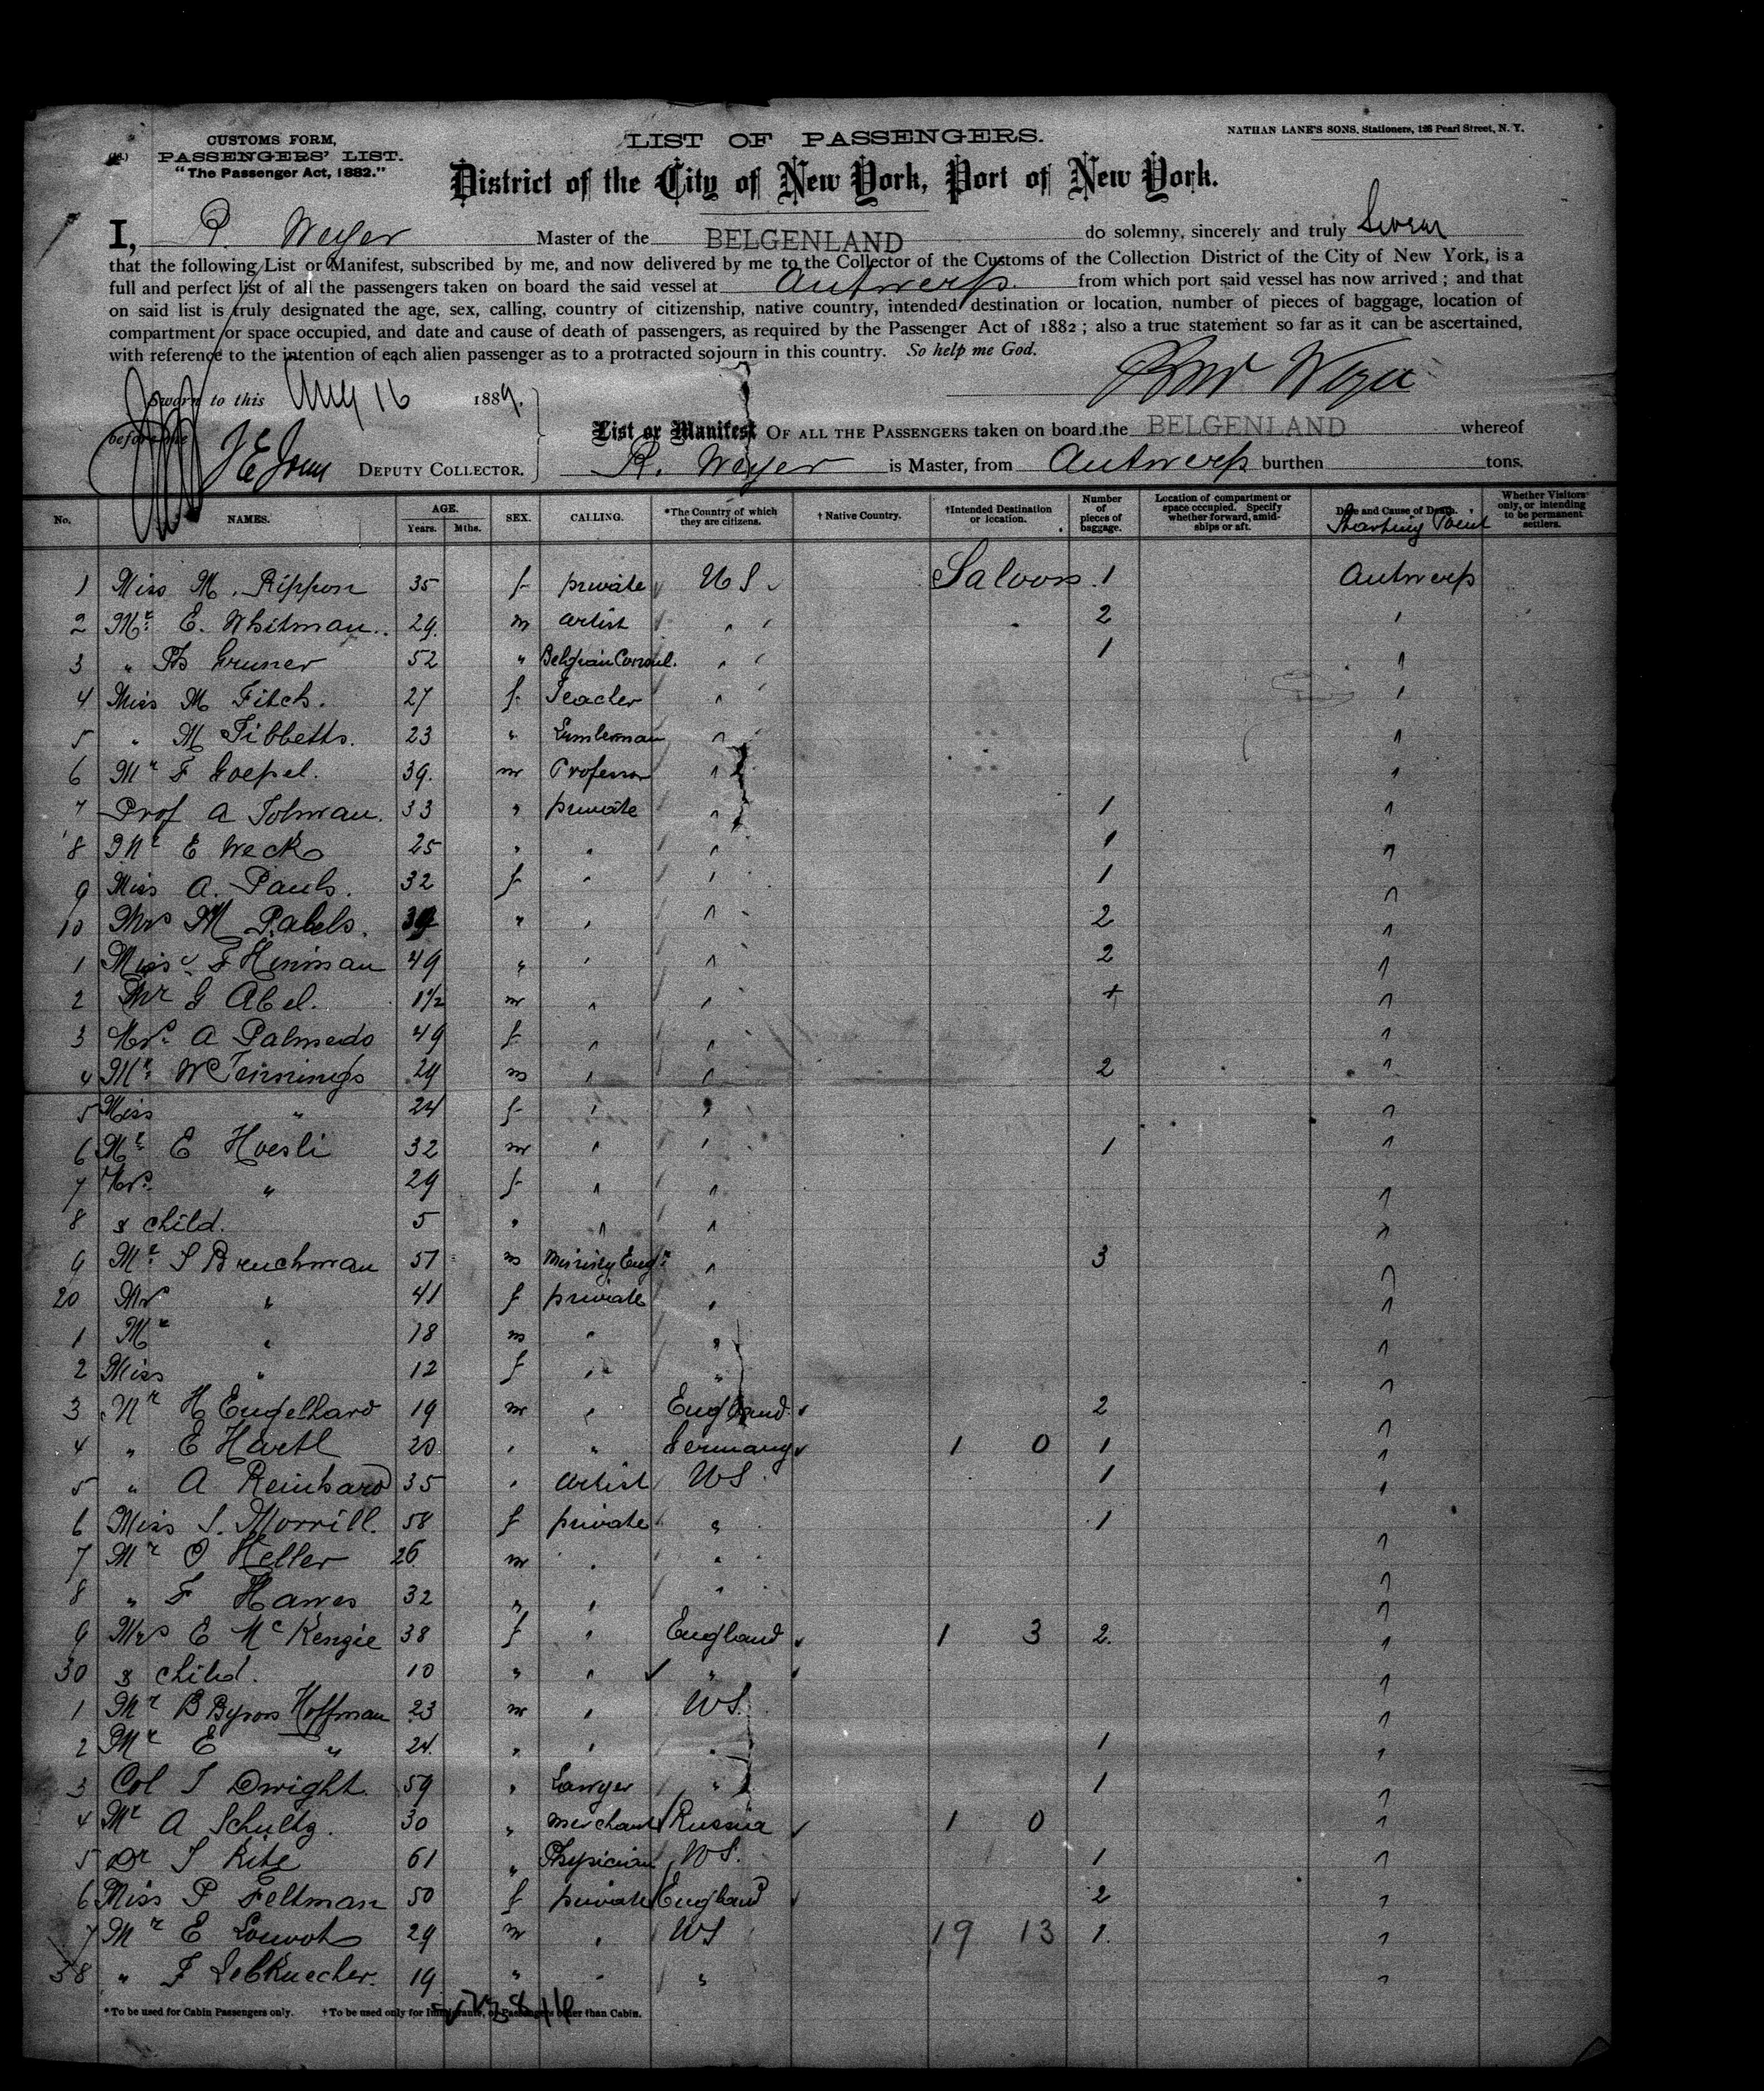 CUSTOMS FORM,
PASSENGERS' LIST.
"The Passenger Act, 1882."
LIST OF PASSENGERS.
NATHAN LANE'S SONS, Stationers, 126 Pearl Street, N. Y.
District of the City of New York, Port of New York.
I, R. Weyer Master of the BELGENLAND do solemny, sincerely and truly Swear
that the following List or Manifest, subscribed by me, and now delivered by me to the Collector of the Customs of the Collection District of the City of New York, is a
full and perfect list of all the passengers taken on board the said vessel at Antwerp. from which port said vessel has now arrived ; and that
on said list is truly designated the age, sex, calling, country of citizenship, native country, intended destination or location, number of pieces of baggage, location of
compartment or space occupied, and date and cause of death of passengers, as required by the Passenger Act of 1882 ; also a true statement so far as it can be ascertained,
with reference to the intention of each alien passenger as to a protracted sojourn in this country. So help me God.
Weyer
Sworn to this Aug 16 1889.
before me
DEPUTY COLLECTOR.
List or Manifest OF ALL THE PASSENGERS taken on board the BELGENLAND whereof
R. Weyer is Master, from Antwerp burthen tons.
No. NAMES. AGE. Years. Mths. SEX. CALLING. *The Country of which they are citizens. †Native Country. †Intended Destination or location. Number of pieces of baggage. Location of compartment or space occupied. Specify whether forward, amidships or aft. Date and Cause of Death. Starting Point Whether Visitors only, or intending to be permanent settlers.
1 Miss M. Rippon 35 f private US Saloon 1 Antwerp
2 Mr. E. Whitman 29. m artist " 2 "
3 " Th Gruner 52 " Belgian Consul. " 1 "
4 Miss M Fitch. 27 f Teacher " "
5 " M Tibbetts. 23 " Lumberman " "
6 Mr F Goepel. 39. m Professor " "
7 Prof A Tolman. 33 " private " 1 "
8 Mr E Weck 25 " " " 1 "
9 Miss A. Pauls. 32 f " " 1 "
10 Mrs M Pabels. " " " 2 "
1 Miss F Hinman 49 " " " 2 "
2 Mr G Abel. 1½ m " " + "
3 Mrs. A Palmedo 49 f " " "
4 Mr. W Jennings 29 m " " 2 "
5 Miss " 24 f " " "
6 Mr. E Hoesli 32 m " " 1 "
7 Mrs. " 29 f " " "
8 & child. 5 " " " "
9 Mr. S Bruchman 51 m Mining Engr " 3 "
20 Mrs " 41 f private " "
1 Mr " 18 m " " "
2 Miss " 12 f " " "
3 Mr H Engelhard 19 m " England 2 "
4 " E Hartl 20 " " Germany 1 0 1 "
5 " A Reinhard 35 " artist US 1 "
6 Miss S. Morrill. 58 f private " 1 "
7 Mr O Heller 26 m " " "
8 " F Hawes 32 " " " "
9 Mrs E McKenzie 38 f " England 1 3 2. "
30 & child. 10 " " " "
1 Mr B Byron Hoffman 23 m " US. "
2 Mr E " 24. " " " 1 "
3 Col T Dwight. 59 " Lawyer " 1 "
4 Mr A Schultz. 30 " merchant Russia 1 0 "
5 Dr S Kitz 61 " Physician US. 1 "
6 Miss P Feltman 50 f private England 2 "
7 Mr E 29 m " US 19 13 1. "
38 " F Lebkuecher. 19 " " " "
*To be used for Cabin Passengers only. †To be used only for Immigrants, or Passengers other than Cabin.